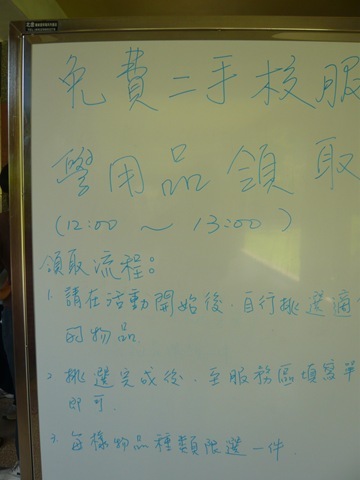 免費二手校服
學用品領取
(12:00 ～ 13:00)
領取流程。
1. 請在活動開始後，自行挑選適
的物品.
2. 挑選完成後，至服務區填寫單
即可.
3. 每樣物品種類限選一件.